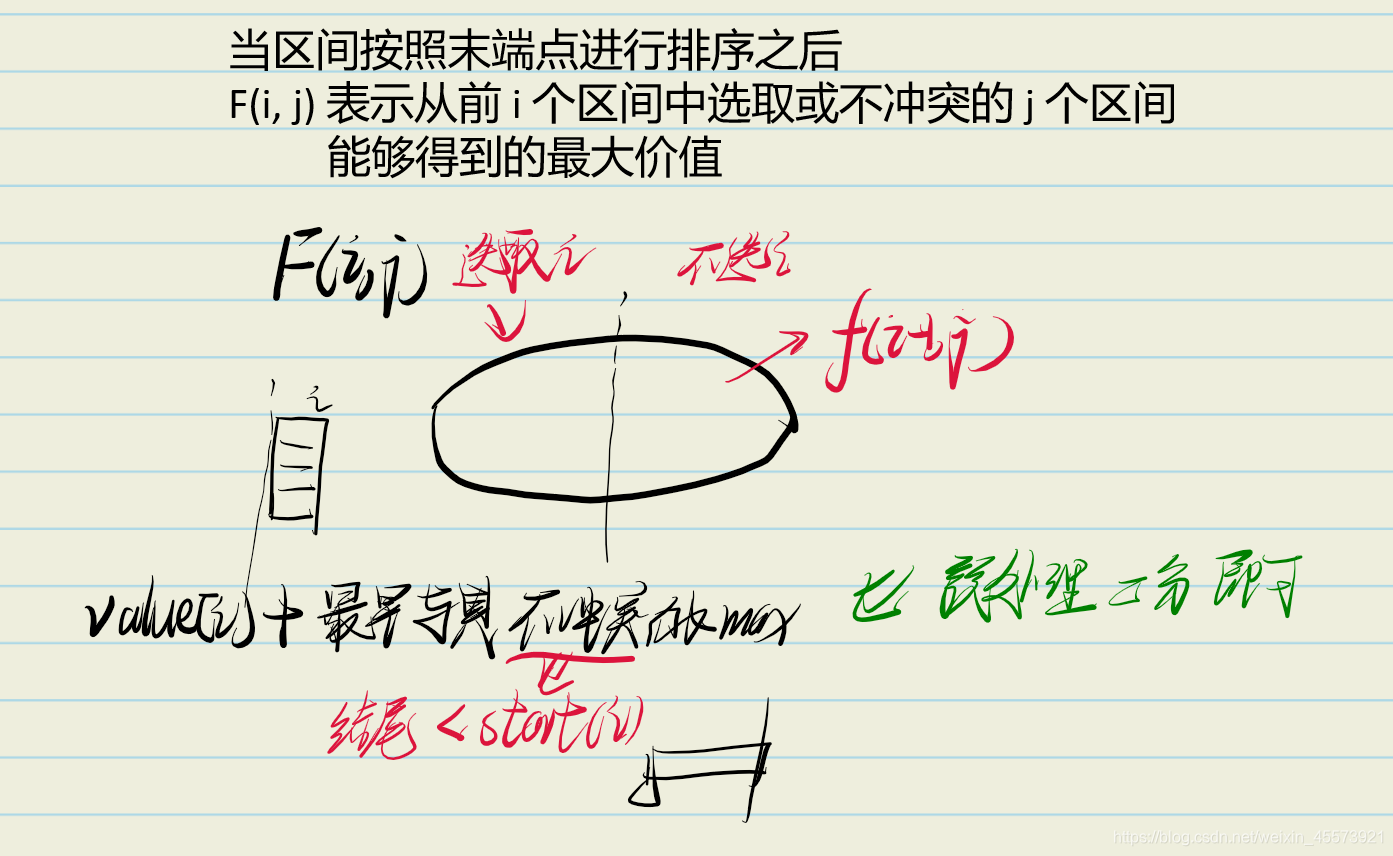 当区间按照末端点进行排序之后
F(i, j) 表示从前 i 个区间中选取或不冲突的 j 个区间
能够得到的最大价值
F(i,j) 选取i 不选i
f(i-1,j)
i
value(i) + 最早与其不冲突的max
预处理二分即可
结尾 < start(i)
https://blog.csdn.net/weixin_45573921